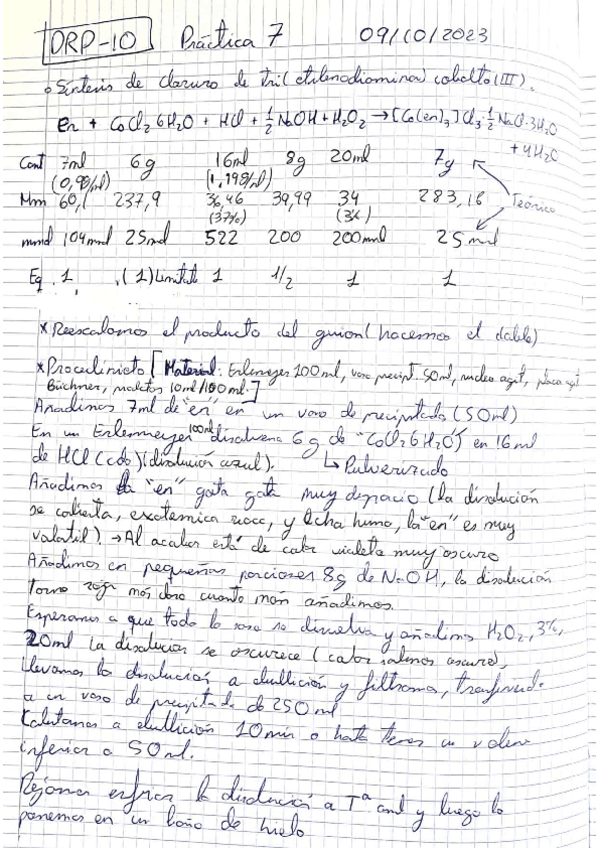 DRP-10 Práctica 7 09/10/2023
Síntesis de cloruro de tri(etilenodiamina) cobalto(III).
En + CoCl2 6H2O + HCl + 1/2 NaOH + H2O2 → [Co(en)3]Cl3 · 1/2 NaCl · 3H2O
+ 4H2O
Cant 7ml 6g 16ml 8g 20ml 7g
(0,9g/ml) (1,19g/ml)
Mm 60,1 237,9 36,46 39,99 34 283,16 Teórico
(37%) (3%)
mmol 104mmol 25mol 522 200 200mmol 25 mmol
Eq. 1 (1) Limitante 1 1/2 1 1
* Reescalamos el producto del guion (hacemos el doble)
* Procedimiento [Material: Erlenmeyer 100ml, vaso precipit. 50ml, nucleo agit, placa agit
Büchner, probetas 10ml/100ml.]
Añadimos 7ml de "en" en un vaso de precipitados (50ml)
En un Erlenmeyer 100ml disolvemos 6g de "CoCl2 6H2O" en 16ml
de HCl (cdo) (disolución azul). ↳ Pulverizado
Añadimos la "en" gota gota muy despacio (la disolucion
se calienta, exotermica, y echa humo, la "en" es muy
volatil). → Al acabar está de color violeta muy oscuro
Añadimos en pequeñas porciones 8g de NaOH, la disolución
torna roja más claro cuanto más añadimos.
Esperamos a que toda la sosa se disuelva y añadimos H2O2, 3%,
20ml La disolucion se oscurece (color oscuro),
llevamos la disolución a ebullición y filtramos,
a un vaso de precipitado de 250ml
Calentamos a ebullición 10min o hasta tener un volumen
inferior a 50ml.
Dejamos enfriar la disolución a Tª amb y luego lo
ponemos en un baño de hielo